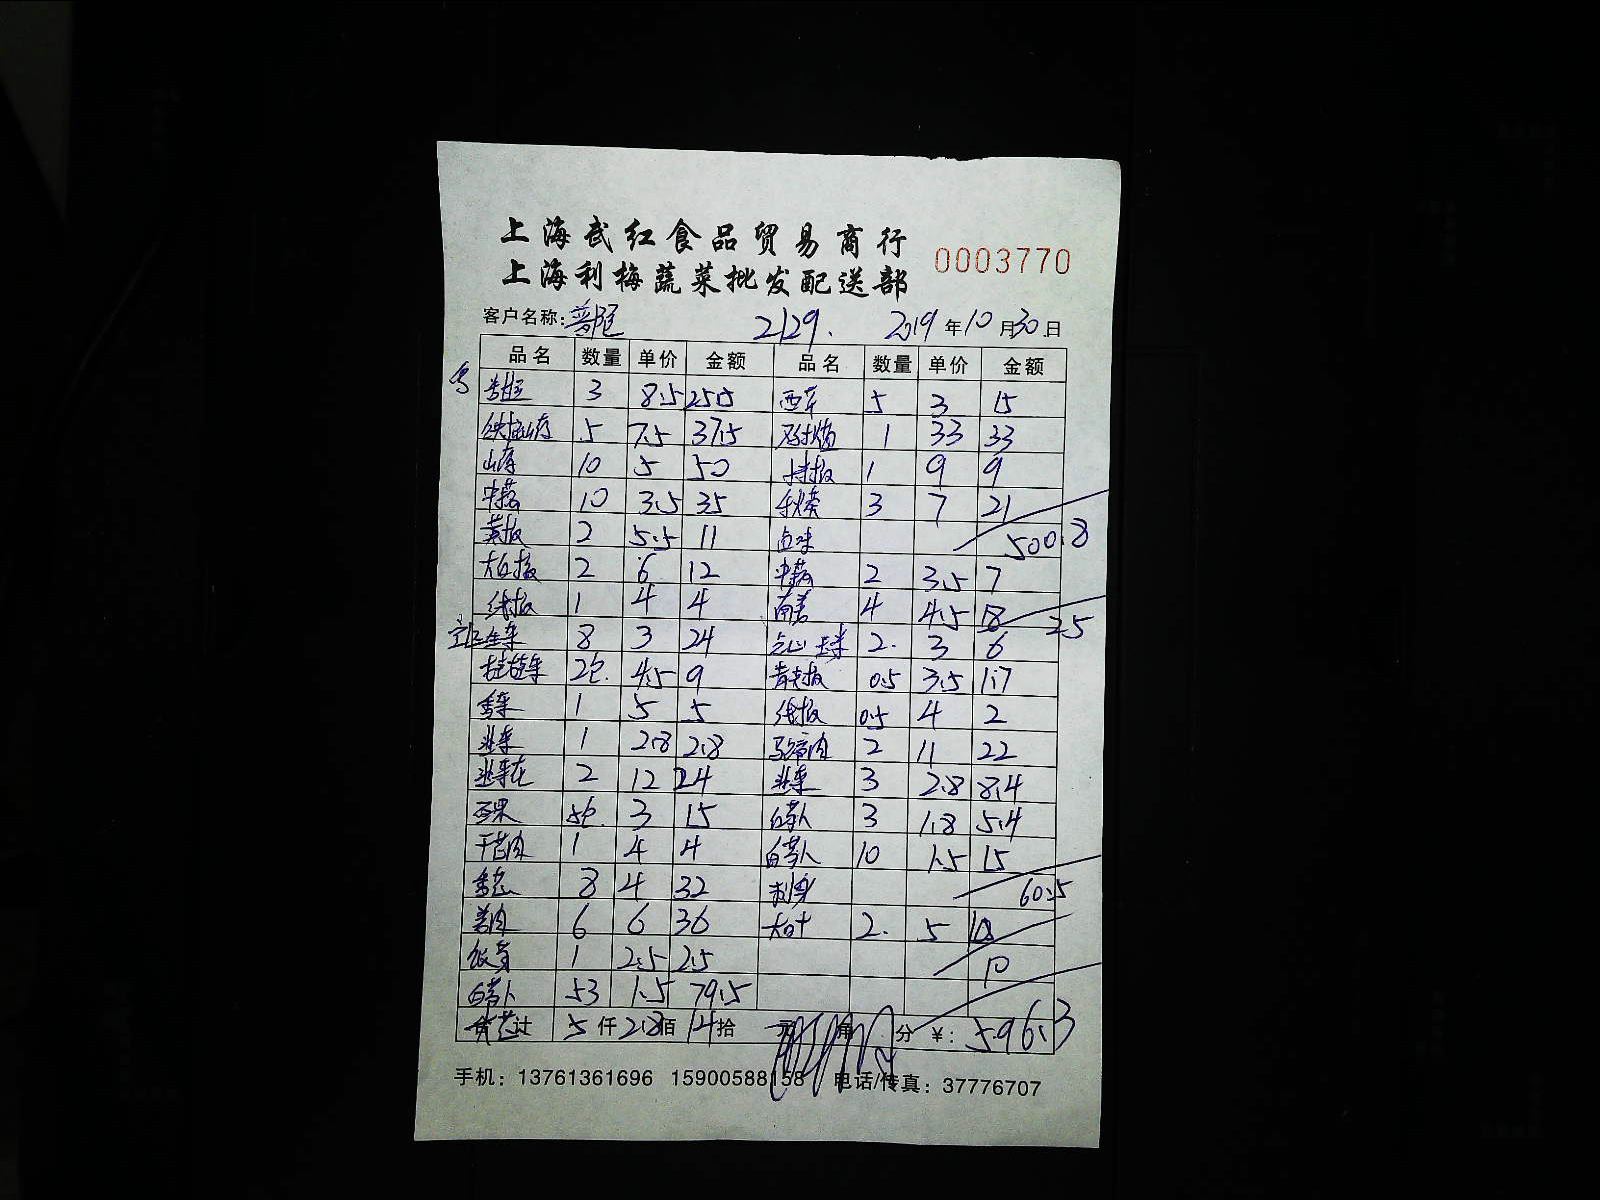 上海武红食品贸易商行
0003770
上海利梅蔬菜批发配送部
客户名称: 普陀 2129. 2019年10月30日
品名 数量 单价 金额 品名 数量 单价 金额
3 8.5 25.5 西芹 5 3 15
铁棍山药 5 7.5 37.5 1 33 33
山药 10 5 50 1 9 9
10 3.5 35 秋葵 3 7 21
黄椒 2 5.5 11 卤味 500.8
2 6 12 2 3.5 7
线椒 1 4 4 4 4.5 18 25
生菜 8 3 24 点心 2. 3 6
2包. 4.5 9 0.5 3.5 1.7
香菜 1 5 5 线椒 0.5 4 2
韭菜 1 2.8 2.8 马蹄肉 2 11 22
韭菜花 2 12 24 韭菜 3 2.8 8.4
5包. 3 15 白萝卜 3 1.8 5.4
1 4 4 白萝卜 10 1.5 15
香葱 8 4 32 刺身 60.5
姜肉 6 6 36 大叶 2. 5 10
1 2.5 2.5 10
白萝卜 53 1.5 79.5
计 5 仟 2.8 佰 14 拾 元 角 分 ¥: 596.3
手机: 13761361696 15900588158 电话/传真: 37776707